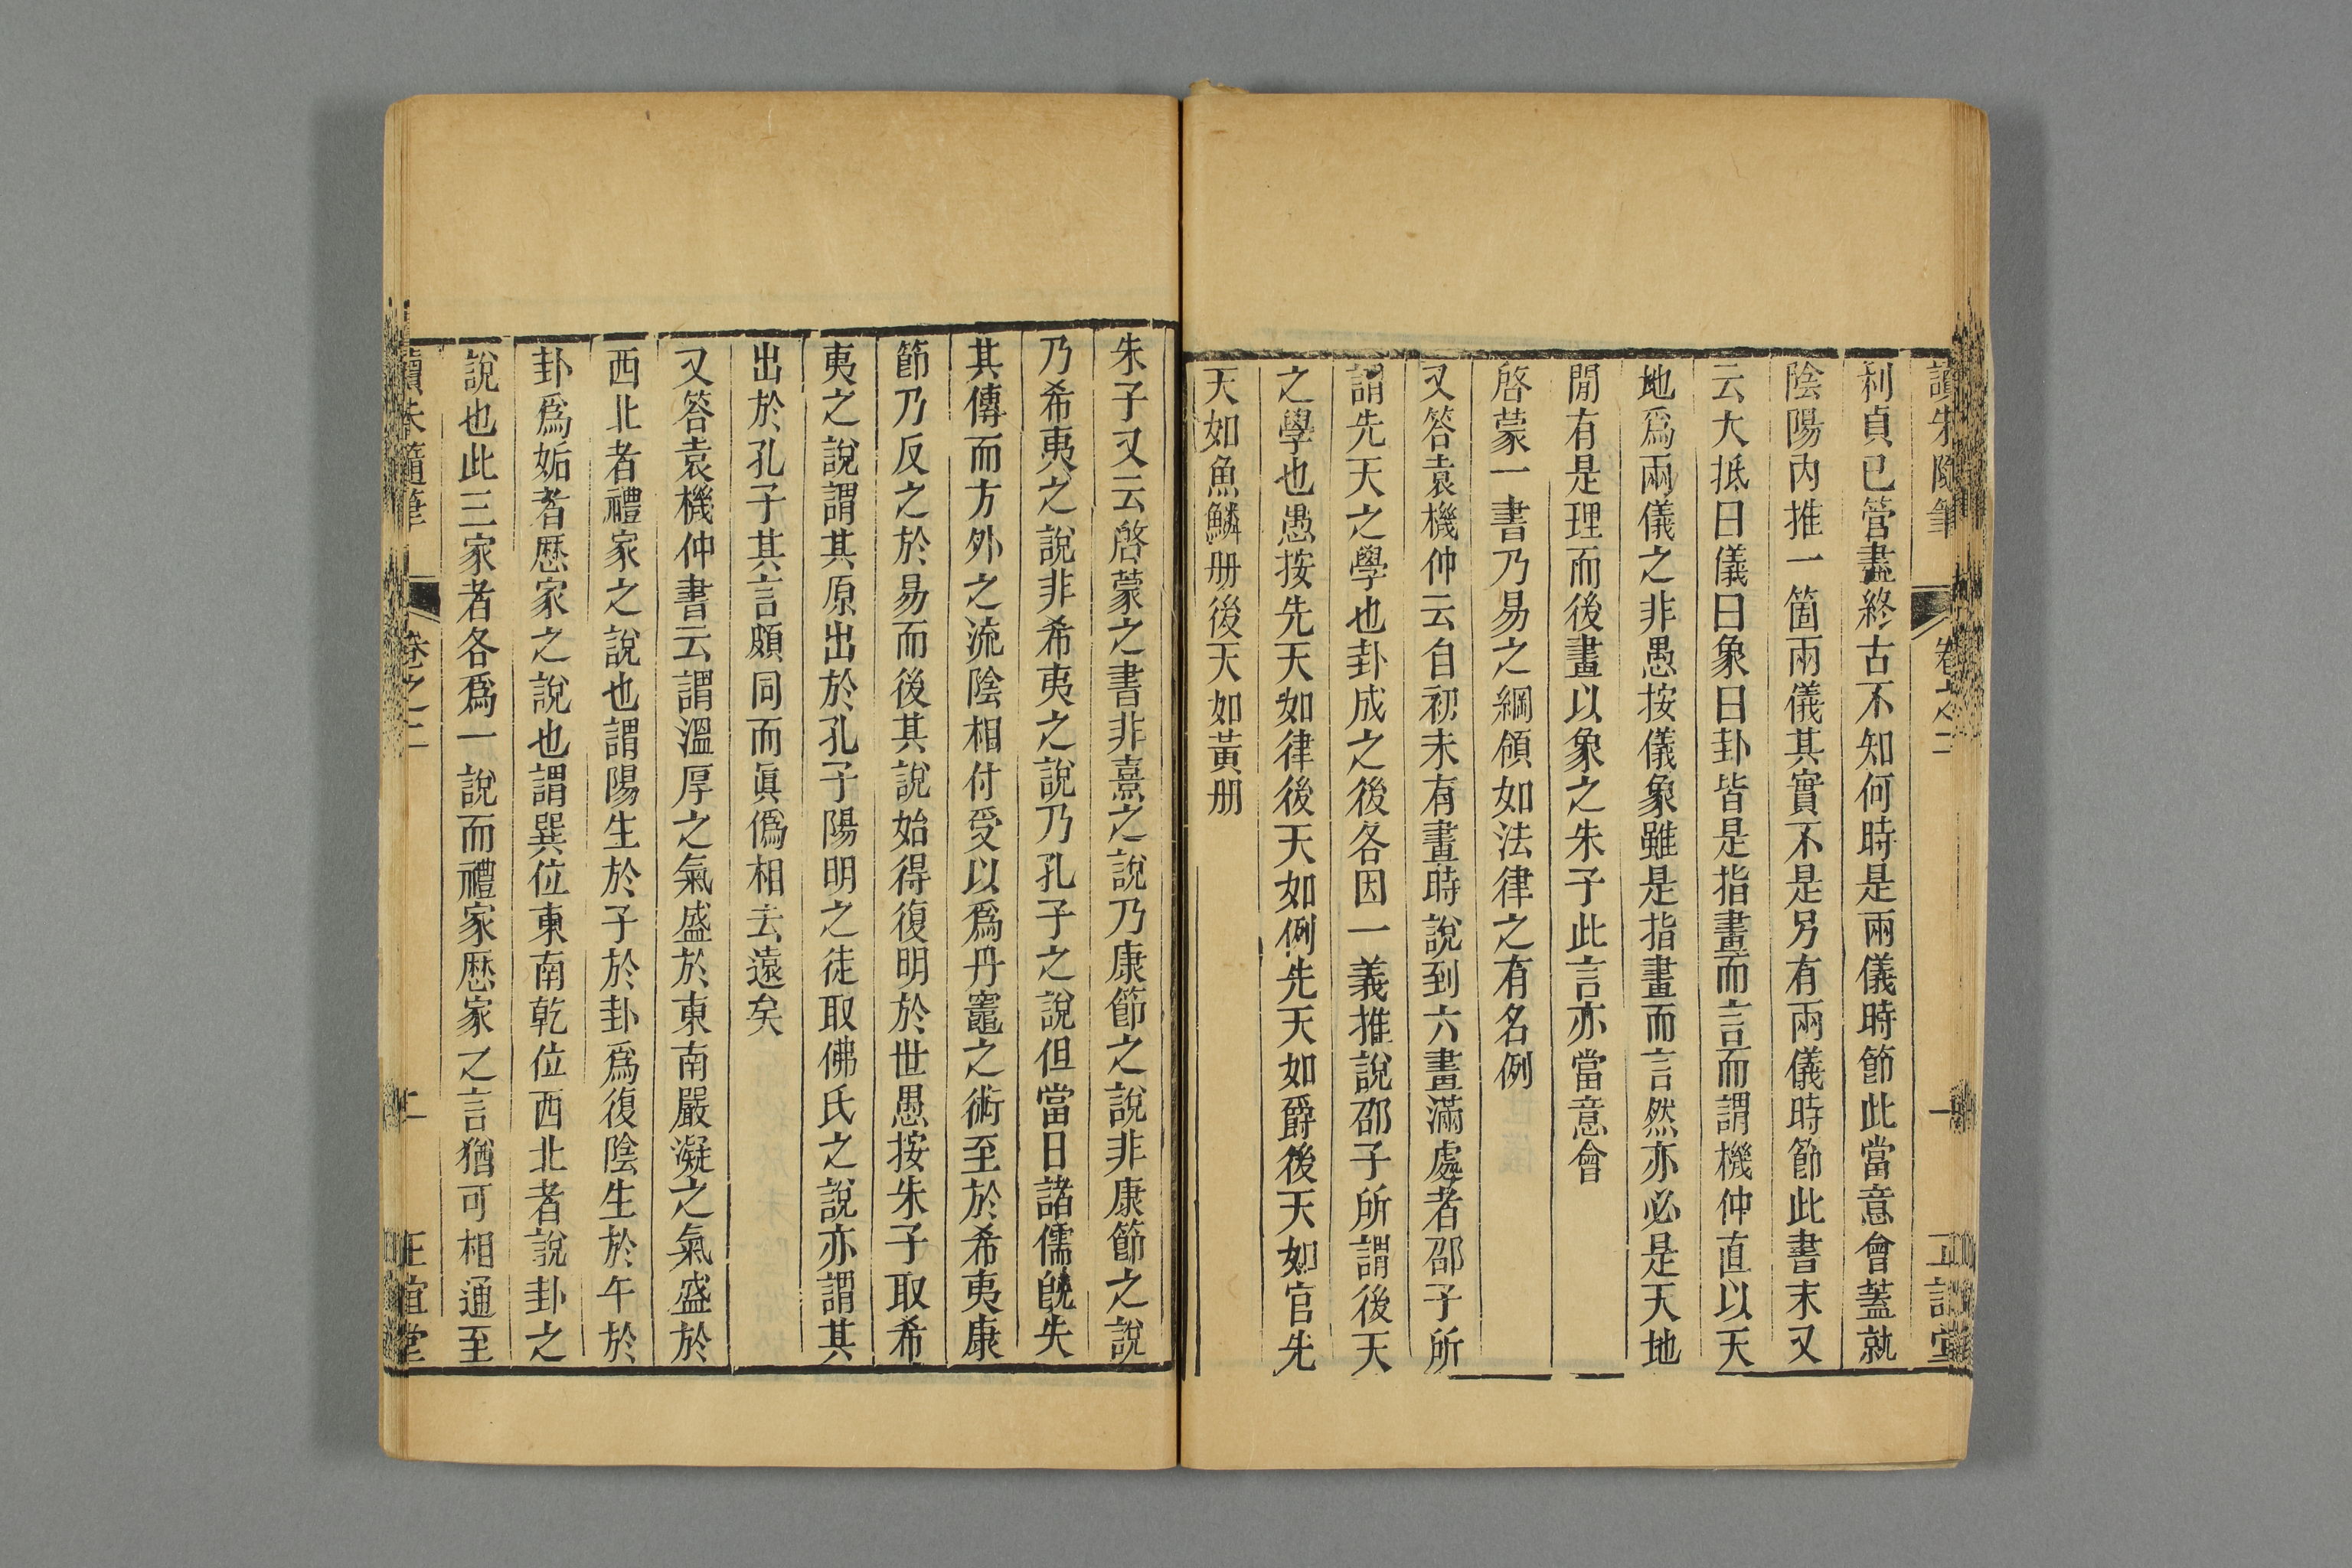 讀朱隨筆 卷之二 一 正誼堂
利貞已管盡終古不知何時是兩儀時節此當意會蓋就
陰陽內推一箇兩儀其實不是另有兩儀時節此書末又
云大抵曰儀曰象曰卦皆是指畫而言而謂機仲直以天
地爲兩儀之非愚按儀象雖是指畫而言然亦必是天地
閒有是理而後畫以象之朱子此言亦當意會
啓蒙一書乃易之綱領如法律之有名例
又答袁機仲云自初未有畫時說到六畫滿處者邵子所
謂先天之學也卦成之後各因一義推說邵子所謂後天
之學也愚按先天如律後天如例先天如爵後天如官先
天如魚鱗册後天如黃册
朱子又云啓蒙之書非熹之說乃康節之說非康節之說
乃希夷之說非希夷之說乃孔子之說但當日諸儒旣失
其傳而方外之流陰相付受以爲丹竈之術至於希夷康
節乃反之於易而後其說始得復明於世愚按朱子取希
夷之說謂其原出於孔子陽明之徒取佛氏之說亦謂其
出於孔子其言頗同而眞僞相去遠矣
又答袁機仲書云謂溫厚之氣盛於東南嚴凝之氣盛於
西北者禮家之說也謂陽生於子於卦爲復陰生於午於
卦爲姤者厯家之說也謂巽位東南乾位西北者說卦之
說也此三家者各爲一說而禮家厯家之言猶可相通至
讀朱隨筆 卷之二 二 正誼堂